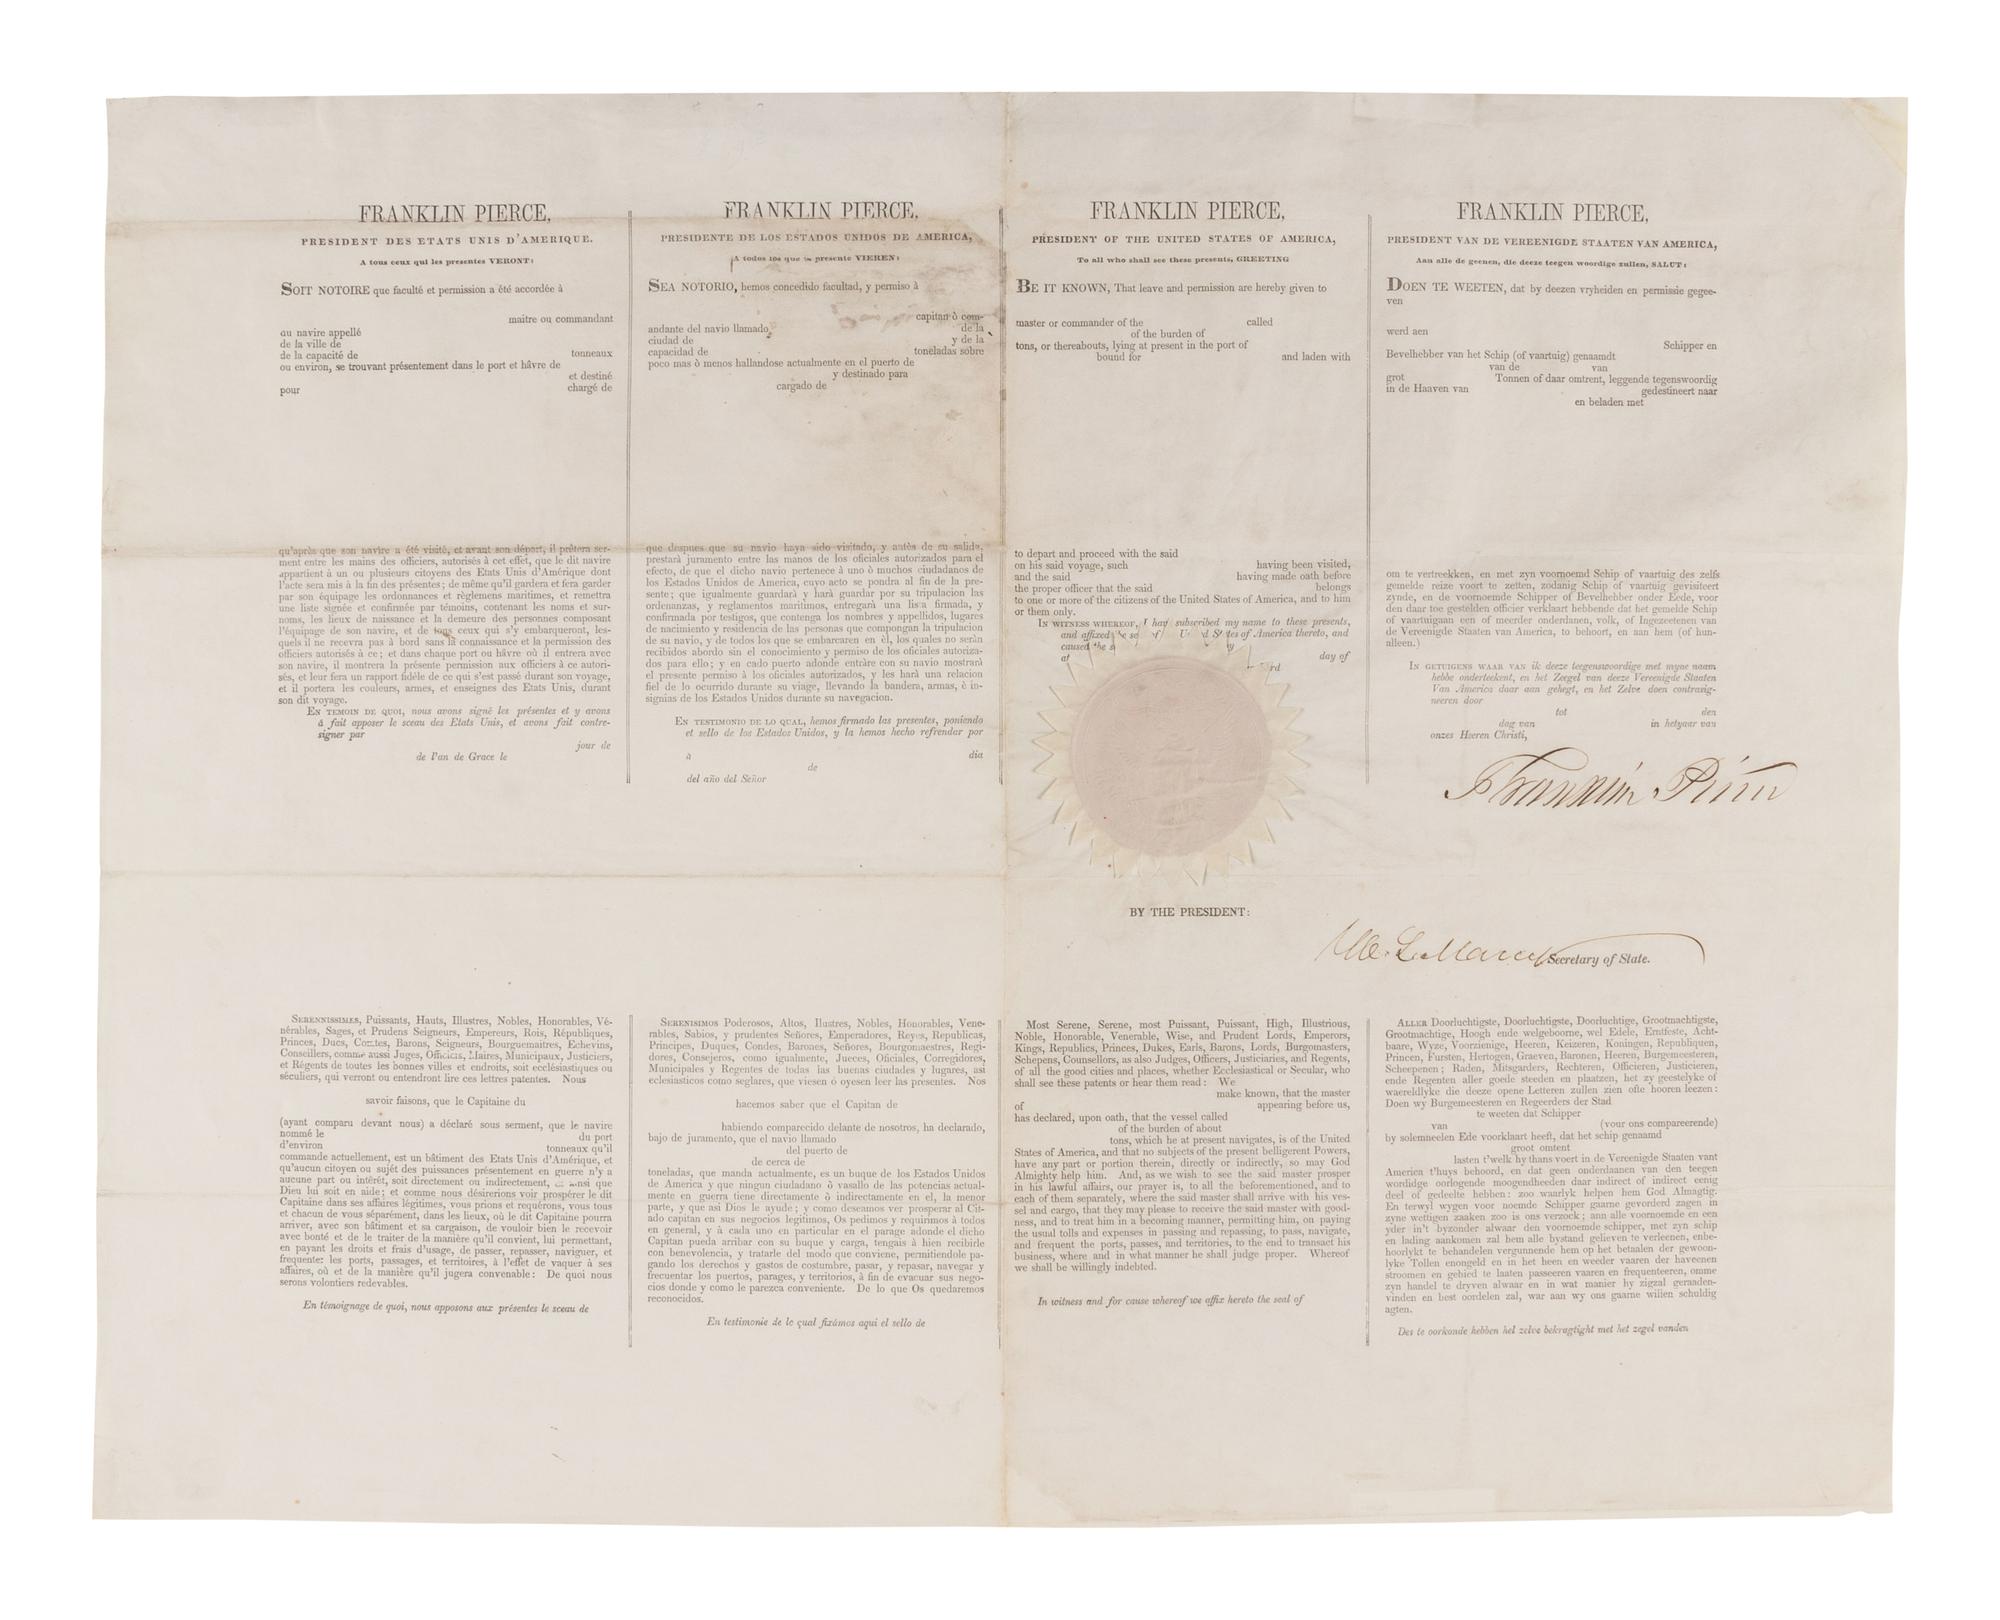 FRANKLIN PIERCE,
PRESIDENT DES ETATS UNIS D'AMERIQUE.
A tous ceux qui les presentes VERONT:
SOIT NOTOIRE que faculté et permission a été accordée à
maitre ou commandant
au navire appellé
de la ville de
de la capacité de tonneaux
ou environ, se trouvant présentement dans le port et hâvre de
et destiné
pour chargé de
qu'après que son navire a été visité, et avant son départ, il prêtera ser-
ment entre les mains des officiers, autorisés à cet effet, que le dit navire
appartient à un ou plusieurs citoyens des Etats Unis d'Amérique dont
l'acte sera mis à la fin des présentes; de même qu'il gardera et fera garder
par son équipage les ordonnances et règlemens maritimes, et remettra
une liste signée et confirmée par témoins, contenant les noms et sur-
noms, les lieux de naissance et la demeure des personnes composant
l'équipage de son navire, et de tous ceux qui s'y embarqueront, les-
quels il ne recevra pas à bord sans la connaissance et la permission des
officiers autorisés à ce; et dans chaque port ou hâvre où il entrera avec
son navire, il montrera la présente permission aux officiers à ce autori-
sés, et leur fera un rapport fidèle de ce qui s'est passé durant son voyage,
et il portera les couleurs, armes, et enseignes des Etats Unis, durant
son dit voyage.
EN TEMOIN DE QUOI, nous avons signé les présentes et y avons
à fait apposer le sceau des Etats Unis, et avons fait contre-
signer par
jour de
de l'an de Grace le
FRANKLIN PIERCE,
PRESIDENTE DE LOS ESTADOS UNIDOS DE AMERICA,
A todos los que la presente VIEREN:
SEA NOTORIO, hemos concedido facultad, y permiso à
capitan ò com-
andante del navio llamado de la
ciudad de y de la
capacidad de toneladas sobre
poco mas ò menos hallandose actualmente en el puerto de
y destinado para
cargado de
que despues que su navio haya sido visitado, y antès de su salida,
prestará juramento entre las manos de los oficiales autorizados para el
efecto, de que el dicho navio pertenece à uno ò muchos ciudadanos de
los Estados Unidos de America, cuyo acto se pondra al fin de la pre-
sente; que igualmente guardará y hará guardar por su tripulacion las
ordenanzas, y reglamentos maritimos, entregará una lista firmada, y
confirmada por testigos, que contenga los nombres y appellidos, lugares
de nacimiento y residencia de las personas que compongan la tripulacion
de su navio, y de todos los que se embarcaren en èl, los quales no seràn
recibidos abordo sin el conocimiento y permiso de los oficiales autoriza-
dos para ello; y en cado puerto adonde entràre con su navio mostrará
el presente permiso à los oficiales autorizados, y les hará una relacion
fiel de lo ocurrido durante su viage, llevando la bandera, armas, è in-
signias de los Estados Unidos durante su navegacion.
EN TESTIMONIO DE LO QUAL, hemos firmado las presentes, poniendo
et sello de los Estados Unidos, y la hemos hecho refrendar por
à dia
de
del año del Señor
FRANKLIN PIERCE,
PRESIDENT OF THE UNITED STATES OF AMERICA,
To all who shall see these presents, GREETING
BE IT KNOWN, That leave and permission are hereby given to
master or commander of the called
of the burden of
tons, or thereabouts, lying at present in the port of
bound for and laden with
to depart and proceed with the said
on his said voyage, such having been visited,
and the said having made oath before
the proper officer that the said belongs
to one or more of the citizens of the United States of America, and to him
or them only.
IN WITNESS WHEREOF, I hav subscribed my name to these presents,
and affixed the se of States of America thereto, and
caused the s y
at day of
rd
FRANKLIN PIERCE,
PRESIDENT VAN DE VEREENIGDE STAATEN VAN AMERICA,
Aan alle de geenen, die deeze teegen woordige zullen, SALUT:
DOEN TE WEETEN, dat by deezen vryheiden en permissie gegee-
ven
werd aen
Schipper en
Bevelhebber van het Schip (of vaartuig) genaamdt
van de van
grot Tonnen of daar omtrent, leggende tegenswoordig
in de Haaven van gedestineert naar
en beladen met
om te vertreekken, en met zyn voornoemd Schip of vaartuig des zelfs
gemelde reize voort te zetten, zodanig Schip of vaartuig gevisiteert
zynde, en de voornoemde Schipper of Bevelhebber onder Eede, voor
den daar toe gestelden officier verklaart hebbende dat het gemelde Schip
of vaartuigaan een of meerder onderdanen, volk, of Ingezeetenen van
de Vereenigde Staaten van America, te behoort, en aan hem (of hun-
alleen.)
IN GETUIGENS WAAR VAN ik deeze teegenswoordige met myne naam
hebbe onderteekent, en het Zeegel van deeze Vereenigde Staaten
Van America daar aan gehegt, en het Zelve doen contrasig-
neeren door
tot den
dag van in hetyaar van
onzes Heeren Christi,
Franklin Pierce
BY THE PRESIDENT:
W. L. Marcy Secretary of State.
SERENNISSIMES, Puissants, Hauts, Illustres, Nobles, Honorables, Vé-
nérables, Sages, et Prudens Seigneurs, Empereurs, Rois, Républiques,
Princes, Ducs, Comtes, Barons, Seigneurs, Bourguemaitres, Echevins,
Conseillers, comme aussi Juges, Officiers, Maires, Municipaux, Justiciers,
et Régents de toutes les bonnes villes et endroits, soit ecclésiastiques ou
séculiers, qui verront ou entendront lire ces lettres patentes. Nous
savoir faisons, que le Capitaine du
(ayant comparu devant nous) a déclaré sous serment, que le navire
nommé le du port
d'environ tonneaux qu'il
commande actuellement, est un bâtiment des Etats Unis d'Amérique, et
qu'aucun citoyen ou sujét des puissances présentement en guerre n'y a
aucune part ou intérêt, soit directement ou indirectement, et ainsi que
Dieu lui soit en aide; et comme nous désirerions voir prospérer le dit
Capitaine dans ses affaires légitimes, vous prions et requérons, vous tous
et chacun de vous séparément, dans les lieux, où le dit Capitaine pourra
arriver, avec son bâtiment et sa cargaison, de vouloir bien le recevoir
avec bonté et de le traiter de la manière qu'il convient, lui permettant,
en payant les droits et frais d'usage, de passer, repasser, naviguer, et
frequente: les ports, passages, et territoires, à l'effet de vaquer à ses
affaires, où et de la manière qu'il jugera convenable: De quoi nous
serons volontiers redevables.
En témoignage de quoi, nous apposons aux présentes le sceau de
SERENISIMOS Poderosos, Altos, Ilustres, Nobles, Honorables, Vene-
rables, Sabios, y prudentes Señores, Emperadores, Reyes, Republicas,
Principes, Duques, Condes, Barones, Señores, Bourgomaestres, Regi-
dores, Consejeros, como igualmente, Jueces, Oficiales, Corregidores,
Municipales y Regentes de todas las buenas ciudades y lugares, asi
eclesiasticos como seglares, que viesen ó oyesen leer las presentes. Nos
hacemos saber que el Capitan de
habiendo comparecido delante de nosotros, ha declarado,
bajo de juramento, que el navio llamado
del puerto de
de cerca de
toneladas, que manda actualmente, es un buque de los Estados Unidos
de America y que ningun ciudadano ò vasallo de las potencias actual-
mente en guerra tiene directamente ò indirectamente en el, la menor
parte, y que asi Dios le ayude; y como deseamos ver prosperar al Cit-
ado capitan en sus negocios legitimos, Os pedimos y requirimos à todos
en general, y à cada uno en particular en el parage adonde el dicho
Capitan pueda arribar con su buque y carga, tengais à bien recibirle
con benevolencia, y tratarle del modo que conviene, permitiendole pa-
gando los derechos y gastos de costumbre, pasar, y repasar, navegar y
frecuentar los puertos, parages, y territorios, à fin de evacuar sus nego-
cios donde y como le parezca conveniente. De lo que Os quedaremos
reconocidos.
En testimonie de lo qual fixámos aqui el sello de
Most Serene, Serene, most Puissant, Puissant, High, Illustrious,
Noble, Honorable, Venerable, Wise, and Prudent Lords, Emperors,
Kings, Republics, Princes, Dukes, Earls, Barons, Lords, Burgomasters,
Schepens, Counsellors, as also Judges, Officers, Justiciaries, and Regents,
of all the good cities and places, whether Ecclesiastical or Secular, who
shall see these patents or hear them read: We
make known, that the master
of appearing before us,
has declared, upon oath, that the vessel called
of the burden of about
tons, which he at present navigates, is of the United
States of America, and that no subjects of the present belligerent Powers,
have any part or portion therein, directly or indirectly, so may God
Almighty help him. And, as we wish to see the said master prosper
in his lawful affairs, our prayer is, to all the beforementioned, and to
each of them separately, where the said master shall arrive with his ves-
sel and cargo, that they may please to receive the said master with good-
ness, and to treat him in a becoming manner, permitting him, on paying
the usual tolls and expenses in passing and repassing, to pass, navigate,
and frequent the ports, passes, and territories, to the end to transact his
business, where and in what manner he shall judge proper. Whereof
we shall be willingly indebted.
In witness and for cause whereof we affix hereto the seal of
ALLER Doorluchtigste, Doorluchtigste, Doorluchtige, Grootmachtigste,
Grootmachtige, Hoogh ende welgeboorne, wel Edele, Erntfeste, Acht-
baare, Wyze, Voorzienige, Heeren, Keizeren, Koningen, Republiquen,
Princen, Fursten, Hertogen, Graeven, Baronen, Heeren, Burgemeesteren,
Scheepenen; Raden, Mitsgarders, Rechteren, Officieren, Justicieren,
ende Regenten aller goede steeden en plaatzen, het zy geestelyke of
waereldlyke die deeze opene Letteren zullen zien ofte hooren leezen:
Doen wy Burgemeesteren en Regeerders der Stad
te weeten dat Schipper
van (vour ons compareerende)
by solemneelen Ede voorklaart heeft, dat het schip genaamd
groot omtent
lasten t'welk hy thans voert in de Vereenigde Staaten vant
America t'huys behoord, en dat geen onderdaanen van den teegen
wordidge oorlogende moogendheeden daar indirect of indirect eenig
deel of gedeelte hebben: zoo waarlyk helpen hem God Almagtig.
En terwyl wygen voor noemde Schipper gaarne gevorderd zagen in
zyne wettigen zaaken zoo is ons verzock; ann alle voornoemde en een
yder in't byzonder alwaar den voornoemde schipper, met zyn schip
en lading aankomen zal hem alle bystand gelieven te verleenen, enbe-
hoorlykt te behandelen vergunnende hem op het betaalen der gewoon-
lyke Tollen enongeld en in het heen en weeder vaaren der haveenen
stroomen en gebied te laaten passeeren vaaren en frequenteeren, omme
zyn handel te dryven alwaar en in wat manier hy zigzal geraden-
vinden en best oordelen zal, war aan wy ons gaarne wilien schuldig
agten.
Des te oorkonde hebben hel zelve bekragtight met het zegel vanden